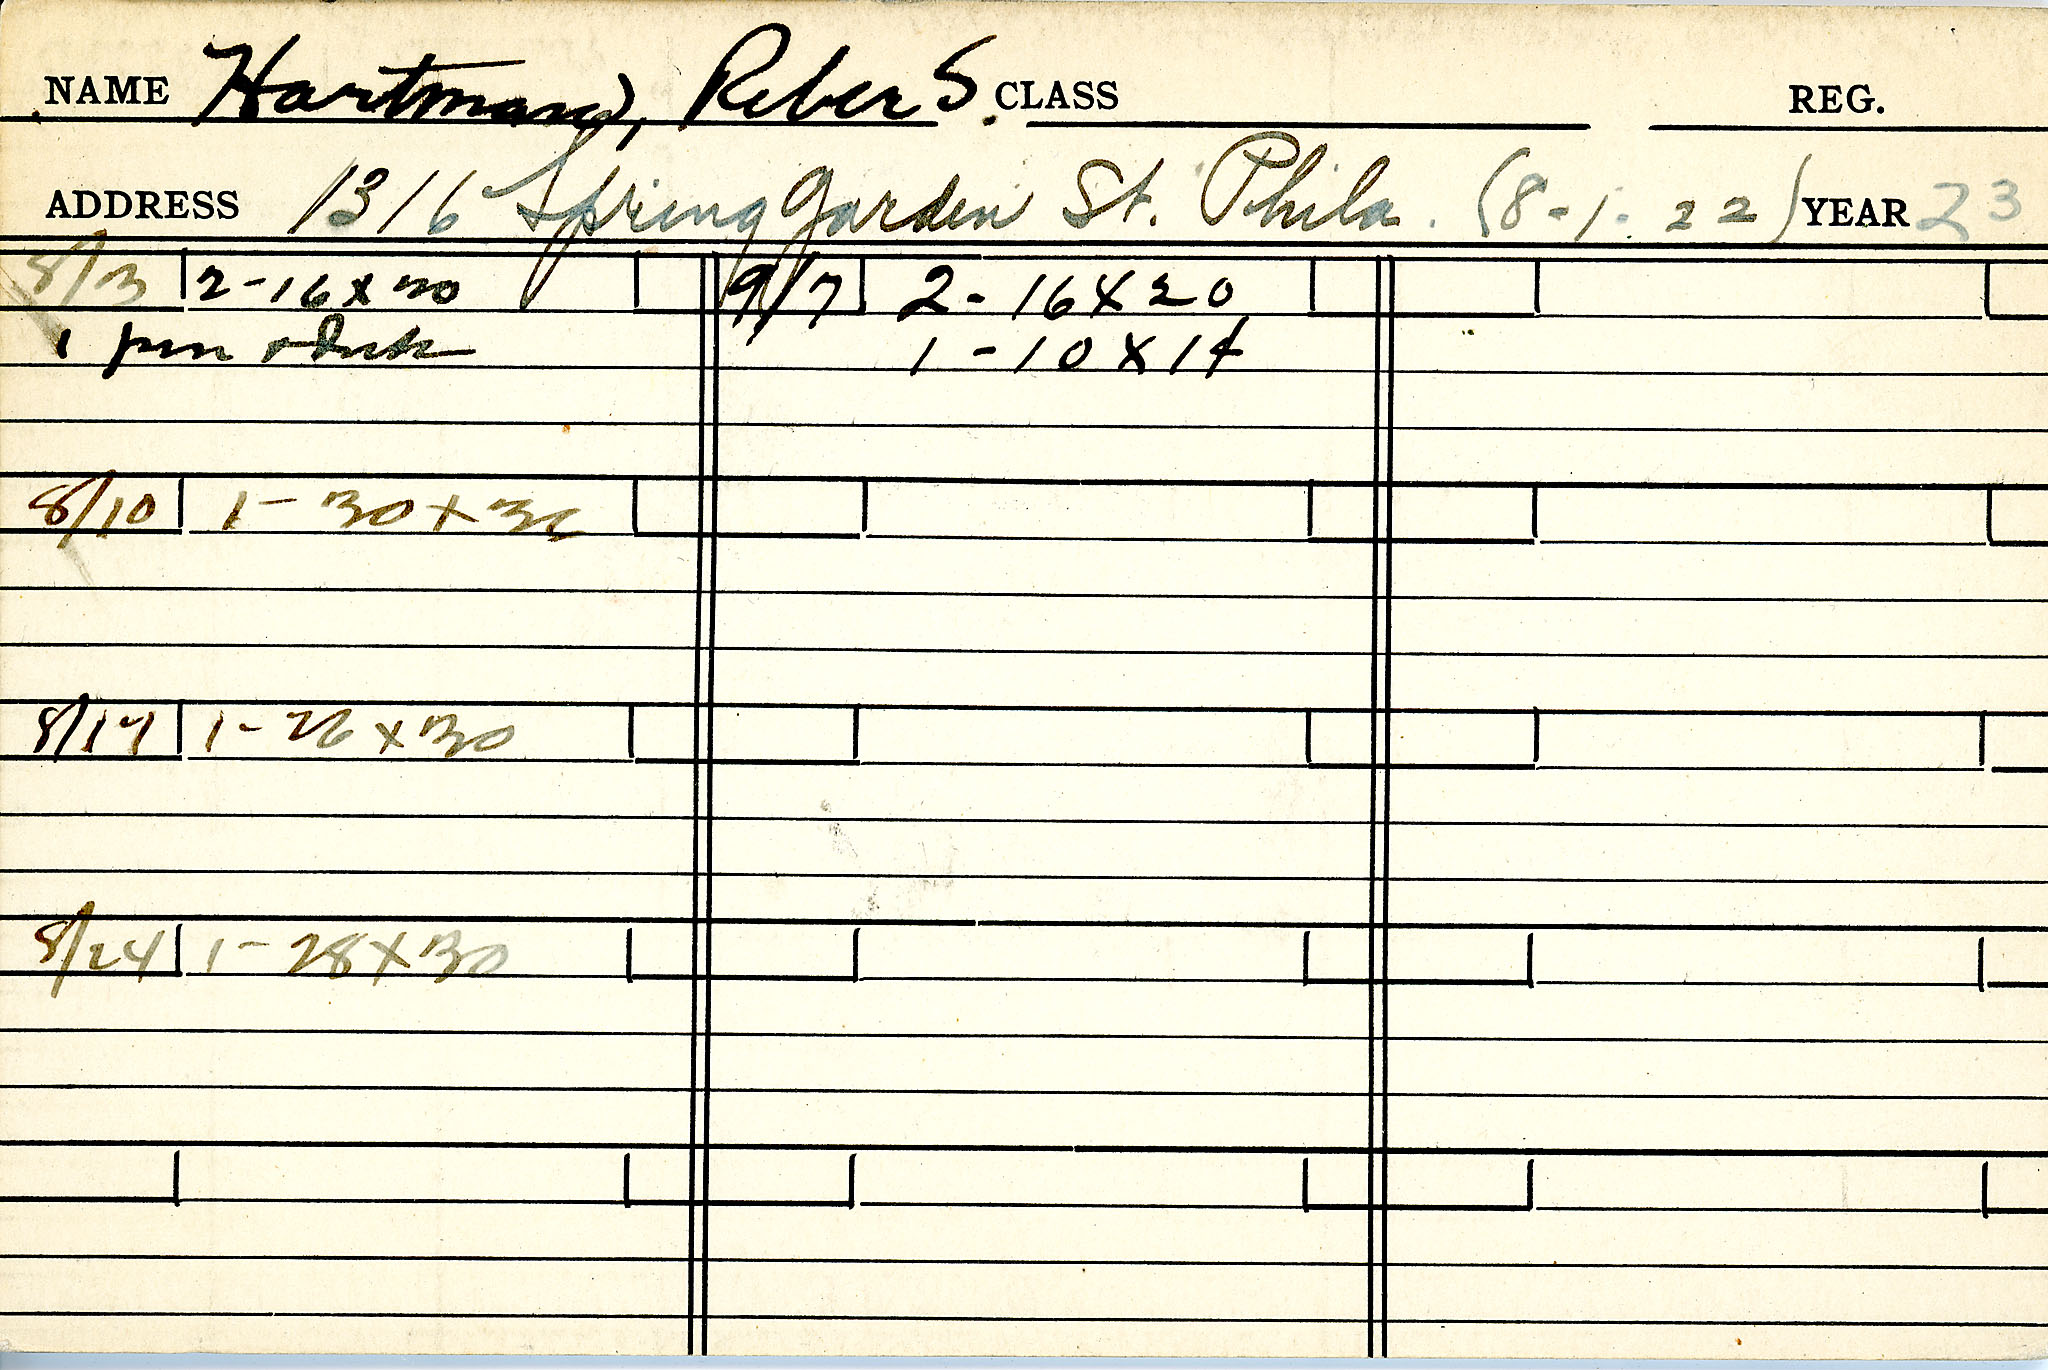 NAME Hartman, Reber S. CLASS REG.
ADDRESS 1316 Spring Garden St. Phila. (8-1-22) YEAR 23
8/3 2-16x20
1 pen & Ink
8/10 1-30x36
8/17 1-26x30
8/24 1-28x30
9/7 2-16x20
1-10x14